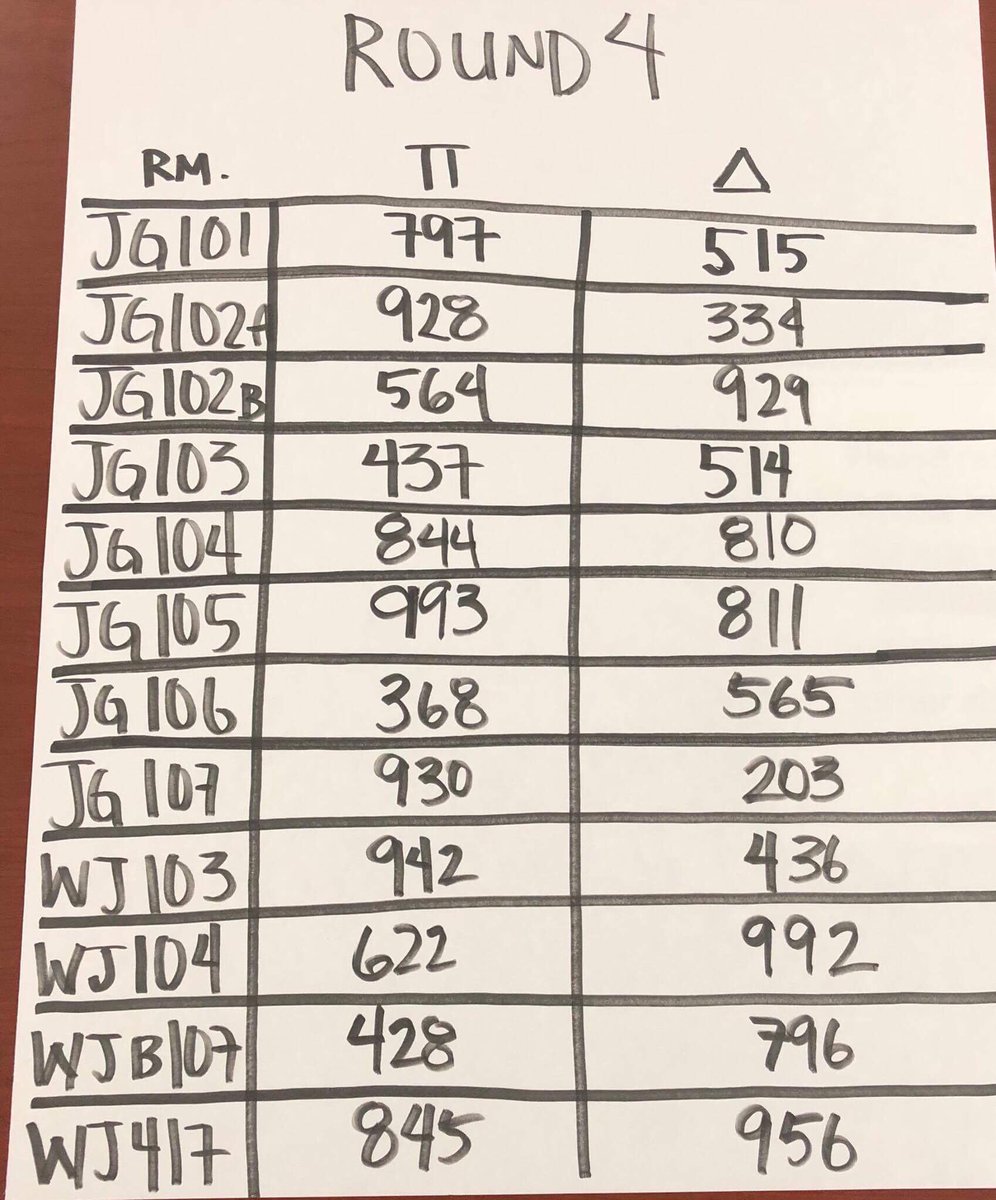 ROUND 4
RM. Π Δ
JG101 797 515
JG102A 928 334
JG102B 564 929
JG103 437 514
JG104 844 810
JG105 993 811
JG106 368 565
JG107 930 203
WJ103 942 436
WJ104 622 992
WJB107 428 796
WJ417 845 956